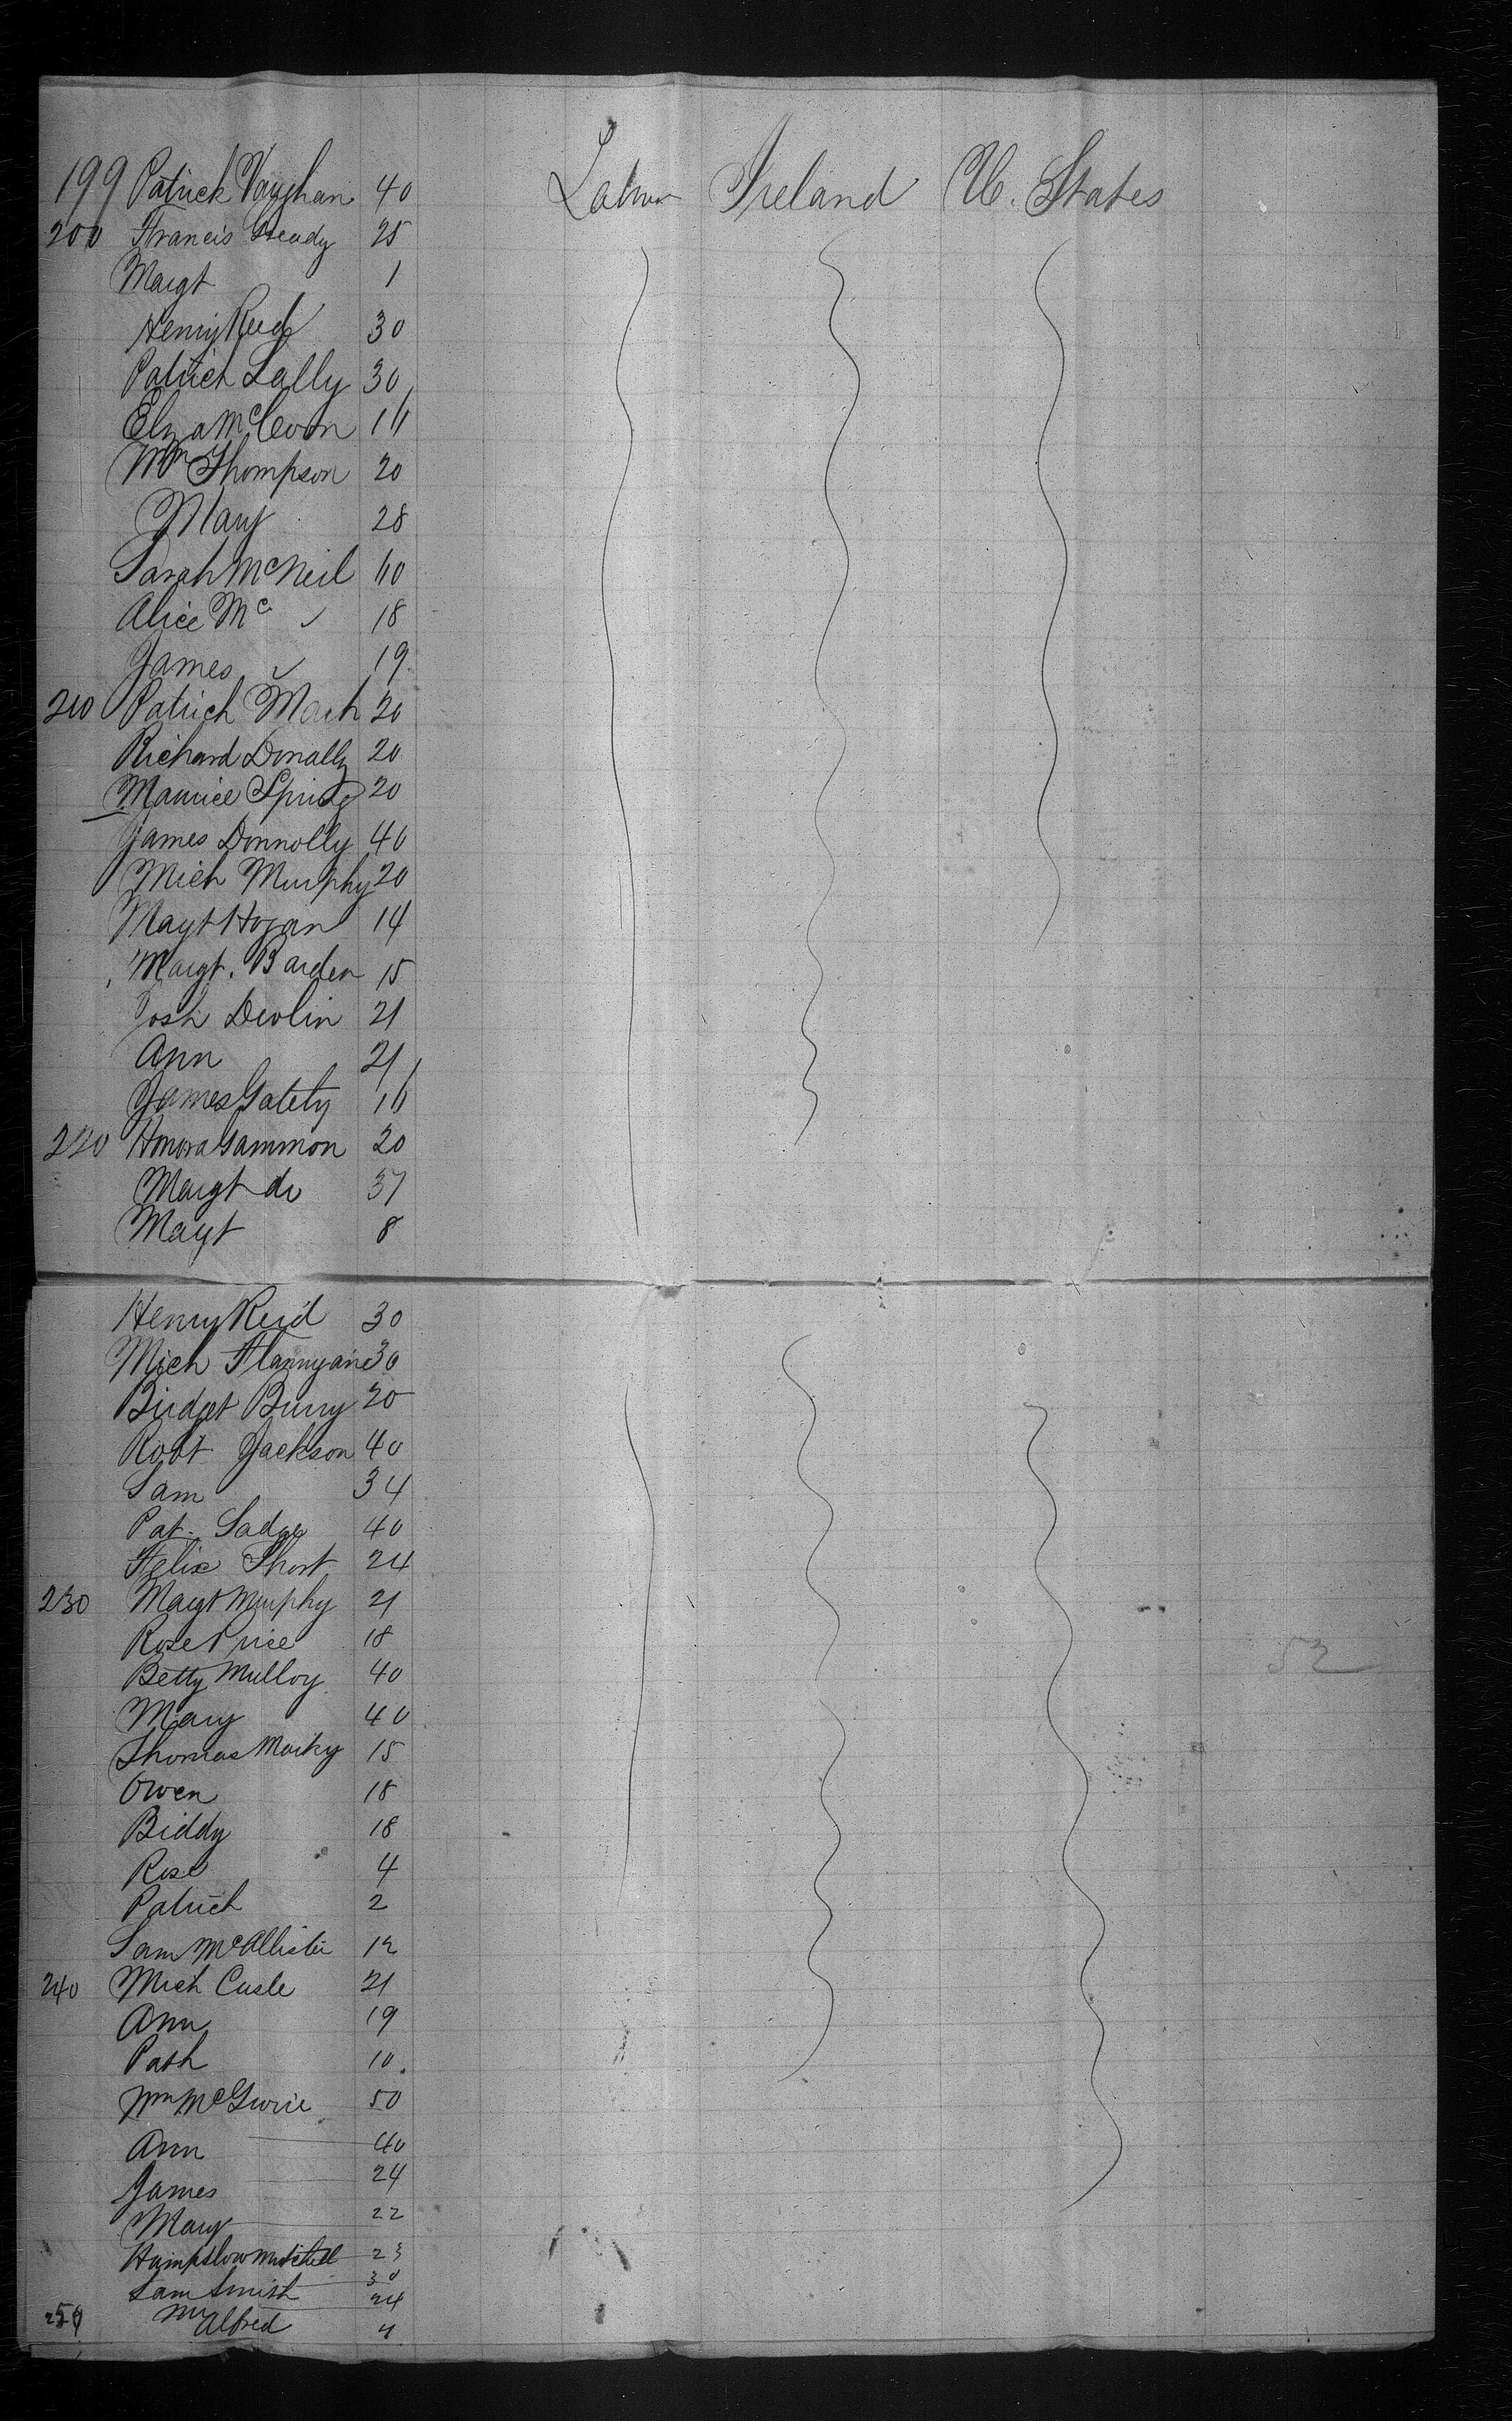 199 Patrick Vaughan 40 Labour Ireland U. States
200 Francis 25
Margt 1
Henry Reed 30
Patrick Lally 30
Eliza 16
Wm Thompson 20
Mary 28
Sarah McNeil 60
Alice Mc ✓ 18
James ✓ 19
210 Patrick 20
Richard Donally 20
Maurice 20
James Donnolly 40
Mich Murphy 20
Magt Hogan 14
Margt. Barden 15
Josh Devlin 21
Ann 21
James 16
220 Honora Gammon 20
Margt do 37
Magt 8
Henry Reid 30
Mich 30
Bridget 20
Robt Jackson 40
Sam 34
Pat. 40
Felix Short 24
230 Magt Murphy 21
Rose Price 18
52
Betty Mulloy 40
Mary 40
Thomas 15
Owen 18
Biddy 18
Rose 4
Patrick 2
Sam McAllister 12
240 Mich 21
Ann 19
10
Wm 50
Ann 40
James 24
Mary 22
Mitchell 23
Sam Smith 30
Mrs 24
Alfred 4